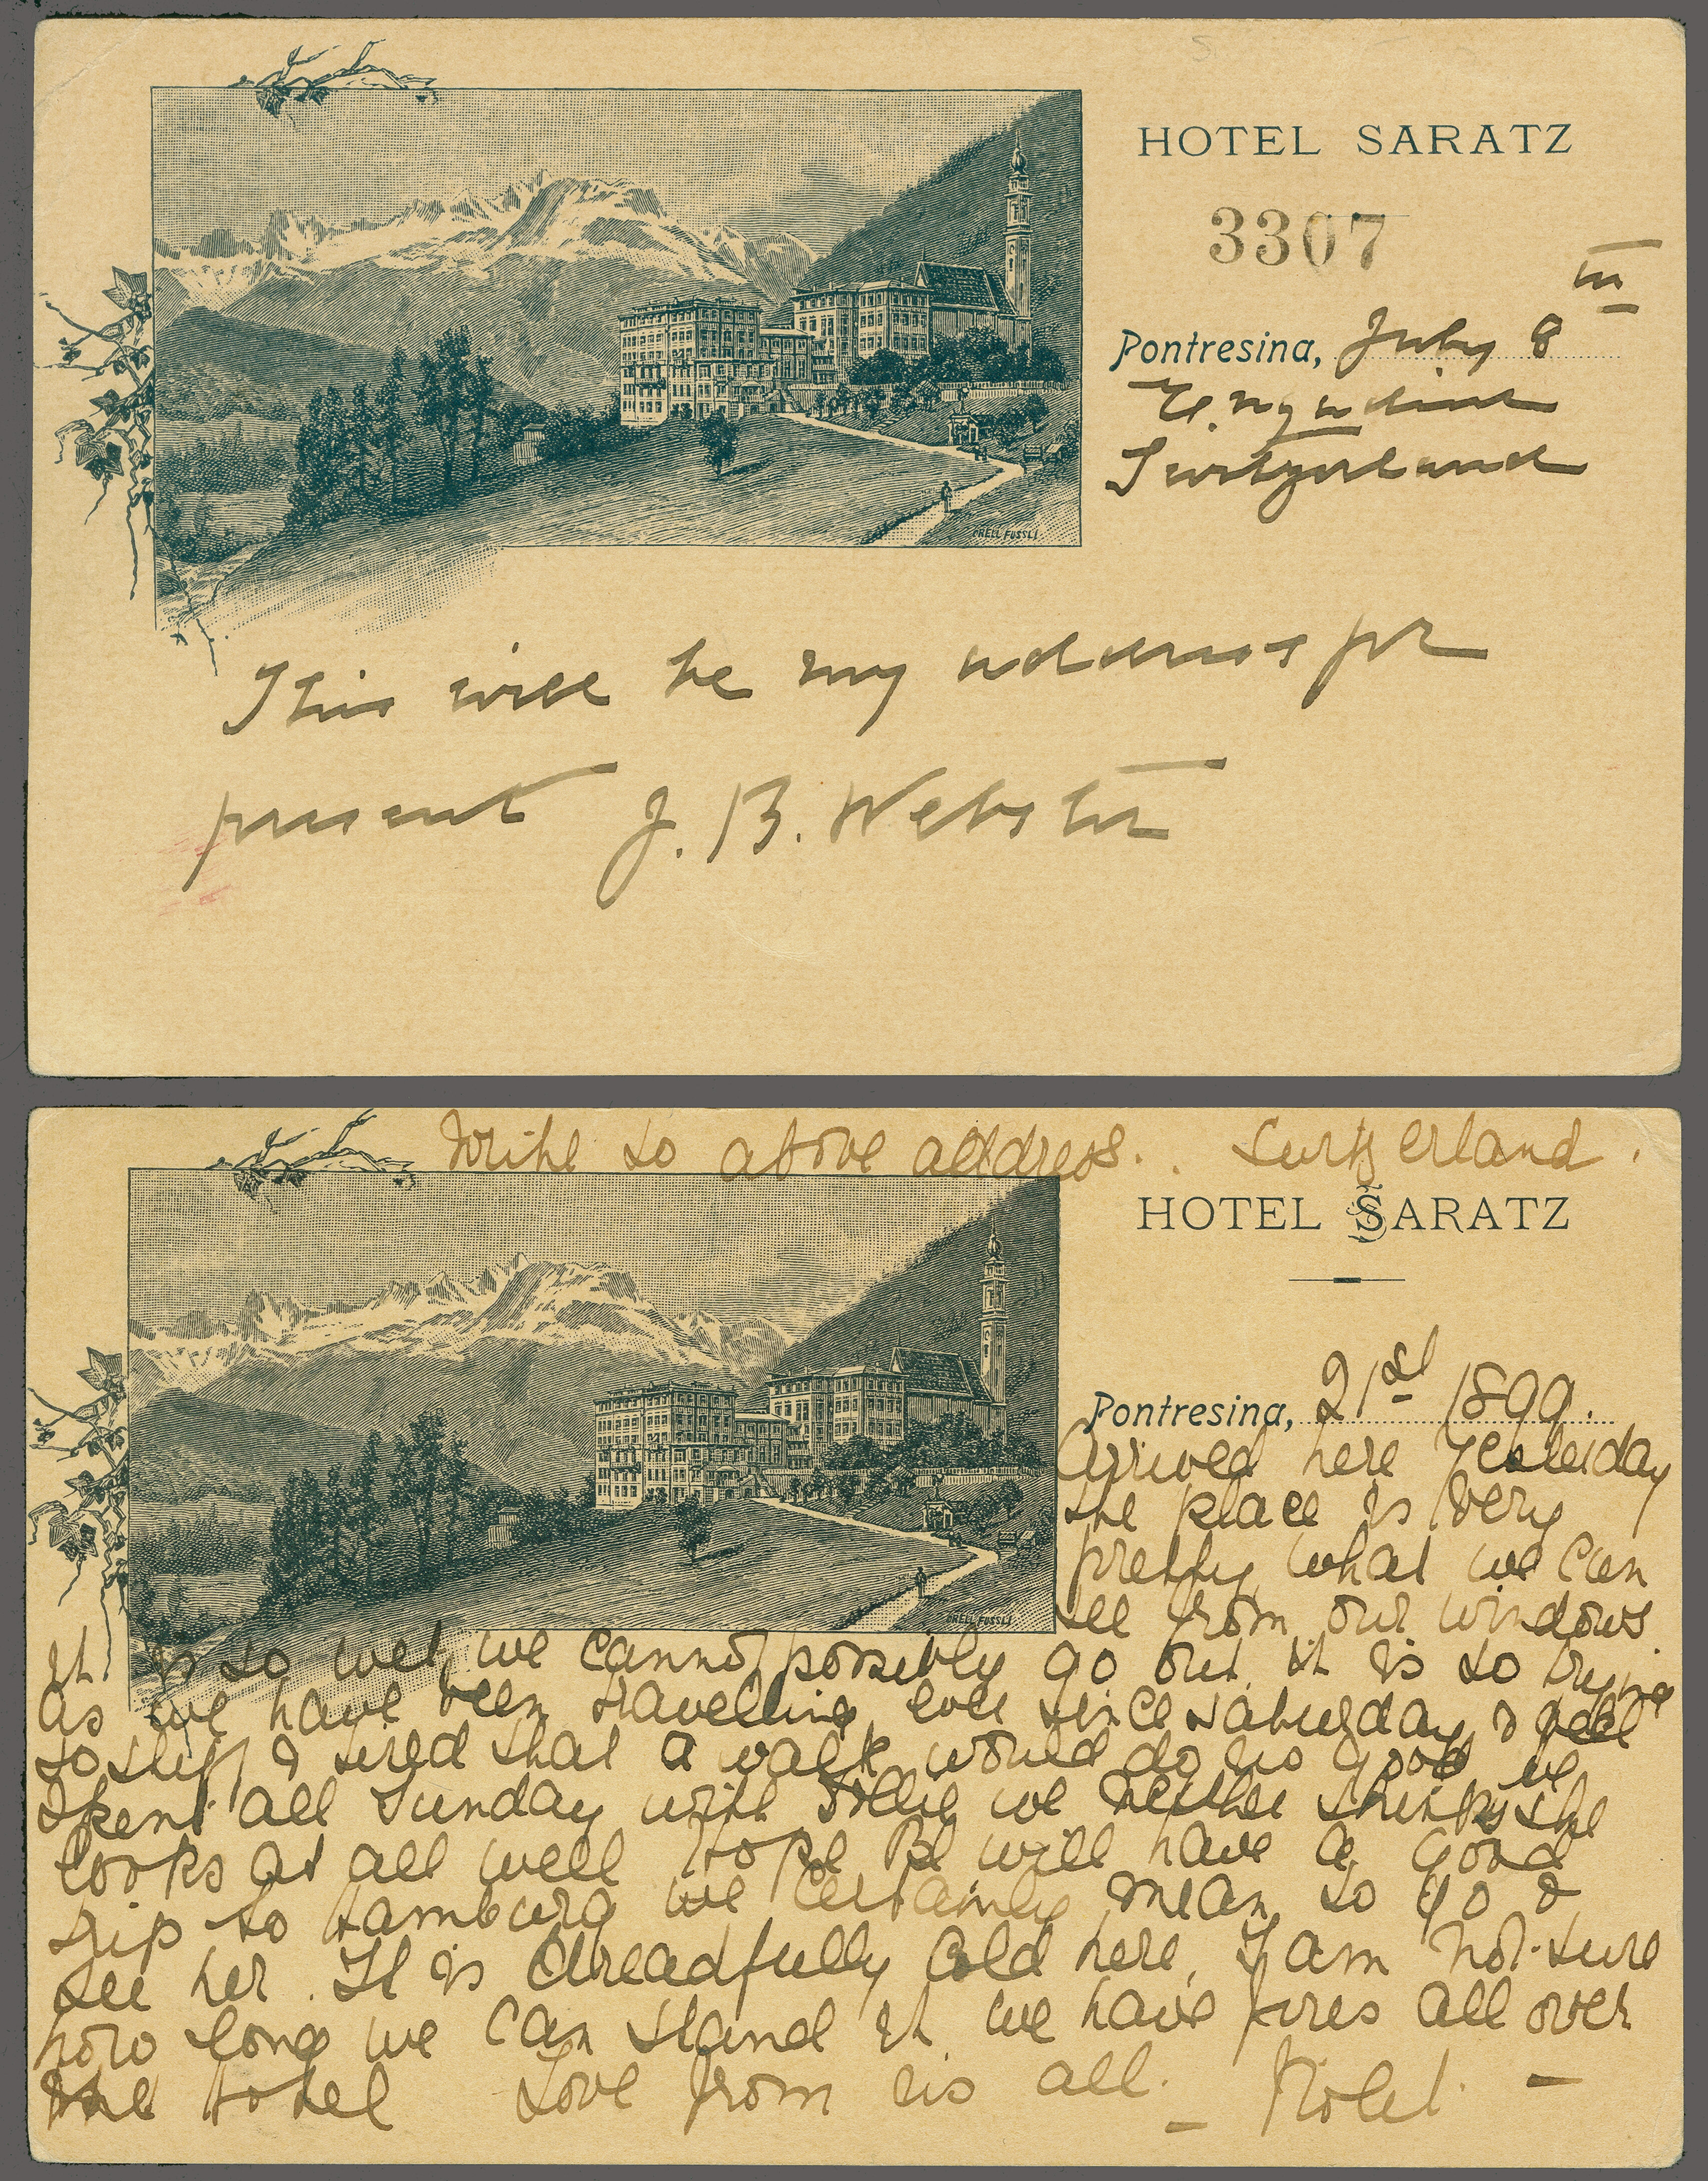 HOTEL SARATZ
3307
Pontresina, July 8
Engadine
Switzerland
ORELL FUSSLI
This will be my address for
present J. B. Webster
Write to above address. . Switzerland.
HOTEL SARATZ
Pontresina, 21st 1899.
Arrived here yesterday
the place is very
pretty what we can
see from our windows
ORELL FUSSLI
It is so wet, we cannot possibly go out it is so trying
as we have been travelling ever since Saturday & feel
so stiff & tired that a walk would do us good we
spent all Sunday with we neither think she
looks at all well Hope will have a good
trip to Hamburg we certainly mean to go &
see her. It is dreadfully cold here, I am not sure
how long we can stand it we have fires all over
the Hotel Love from us all. –